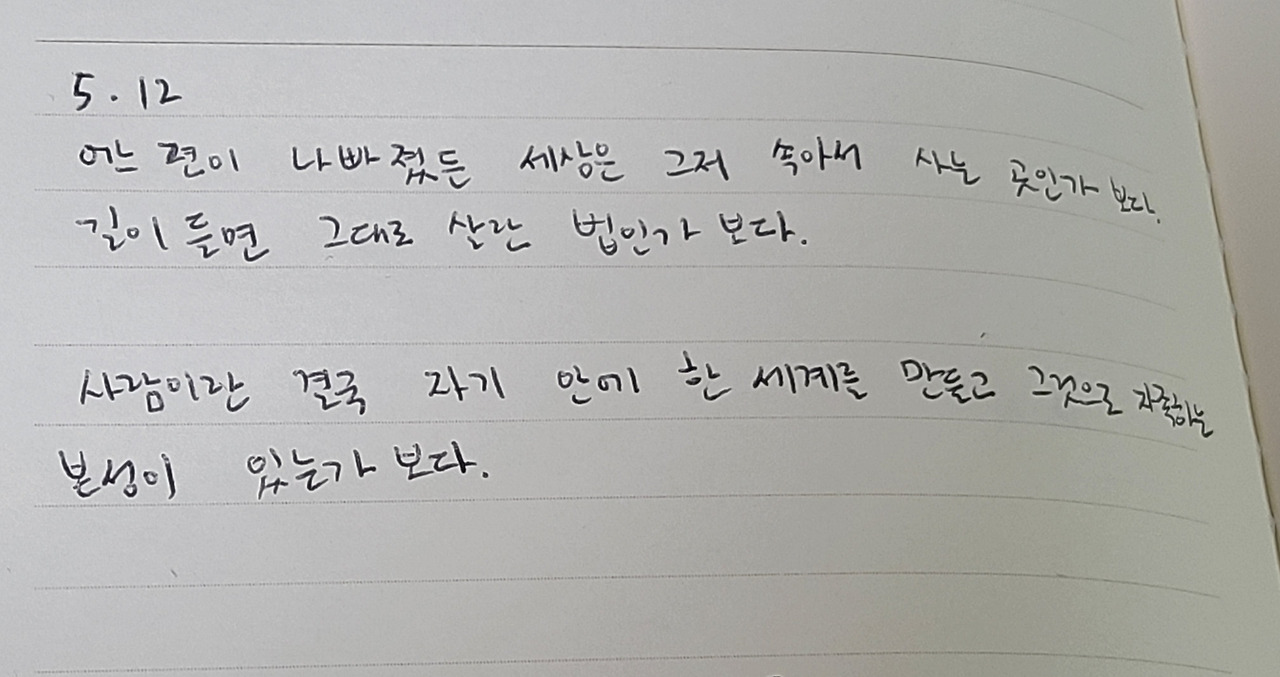 5.12
어느 편이 나빠졌든 세상은 그저 속아서 사는 곳인가 보다.
길이 들면 그대로 살란 법인가 보다.
사람이란 결국 자기 안에 한 세계를 만들고 그것으로 자족하는
본성이 있는가 보다.